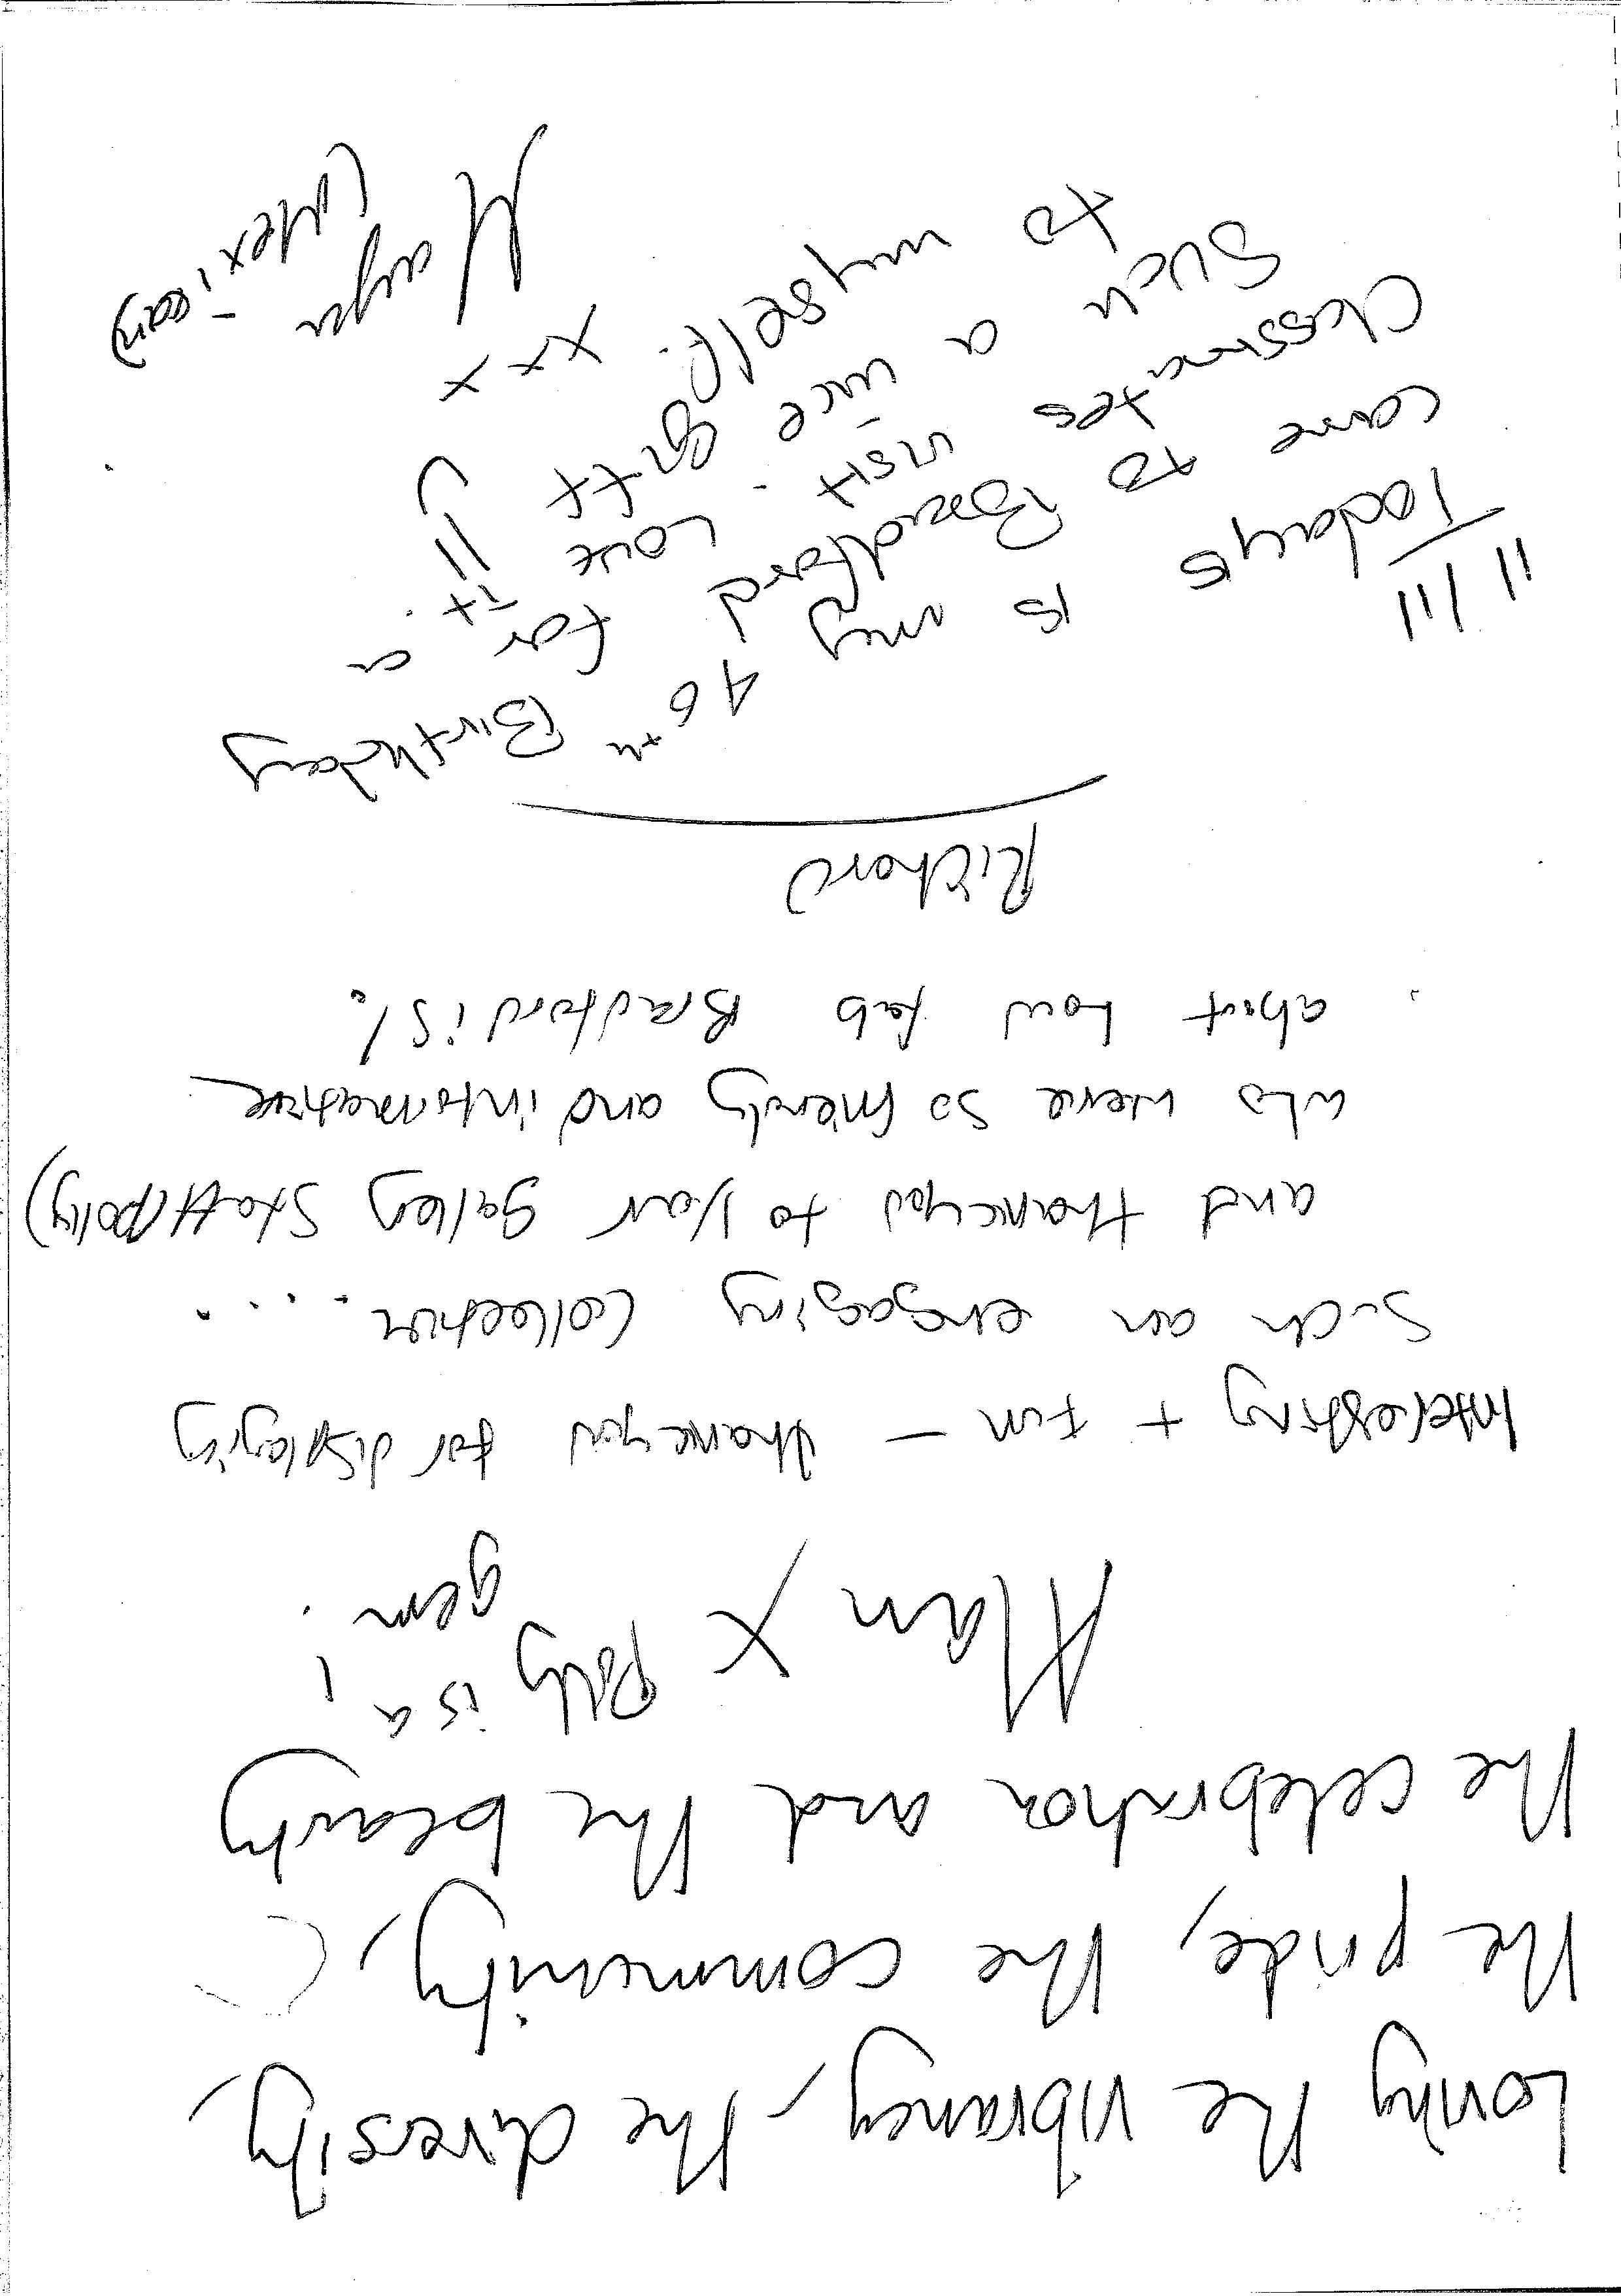 Loving the vibrancy, the diversity,
the pride, the community,
the celebration and the beauty
Alan x Polly is a
gem!
Interesting + Fun – thankyou for displaying
such an engaging collection ....
and thankyou to your gallery staff (polly)
who were so friendly and informative
about how fab Bradford is!.
Richard
11/11
Todays is my 46th Birthday
came to Bradford for a
classmates visit. Love it.
Such a nice gift =)
to myself. xxx